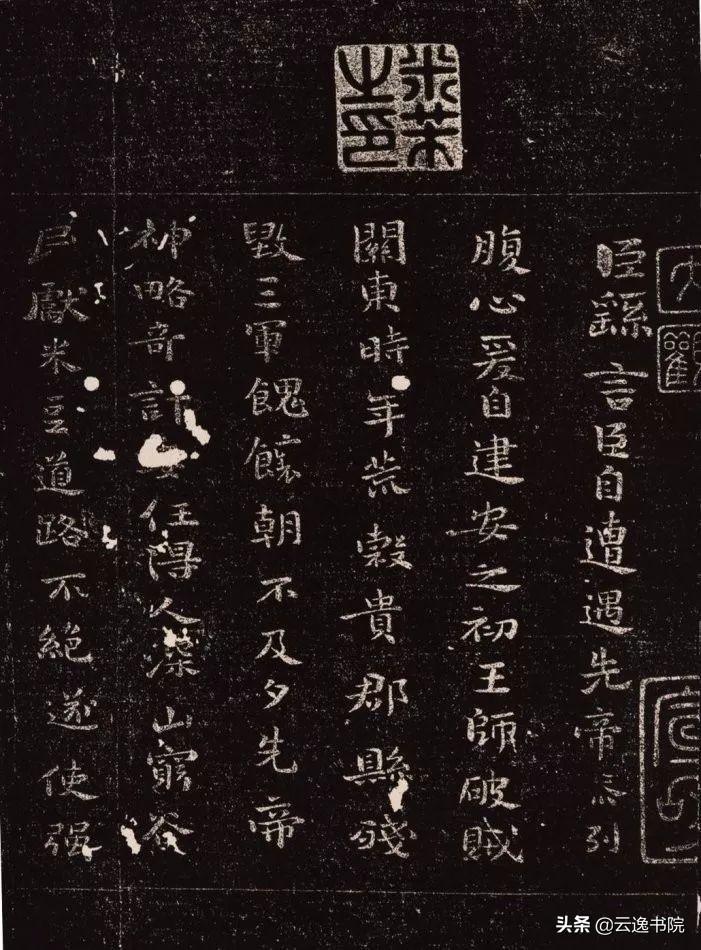 米芾之印
大觀
臣繇言臣自遭遇先帝忝列
腹心爰自建安之初王師破賊
關東時年荒穀貴郡縣殘
毀三軍餽饟朝不及夕先帝
神略奇計委任得人深山窮谷
民獻米豆道路不絕遂使强
头条 @云逸书院